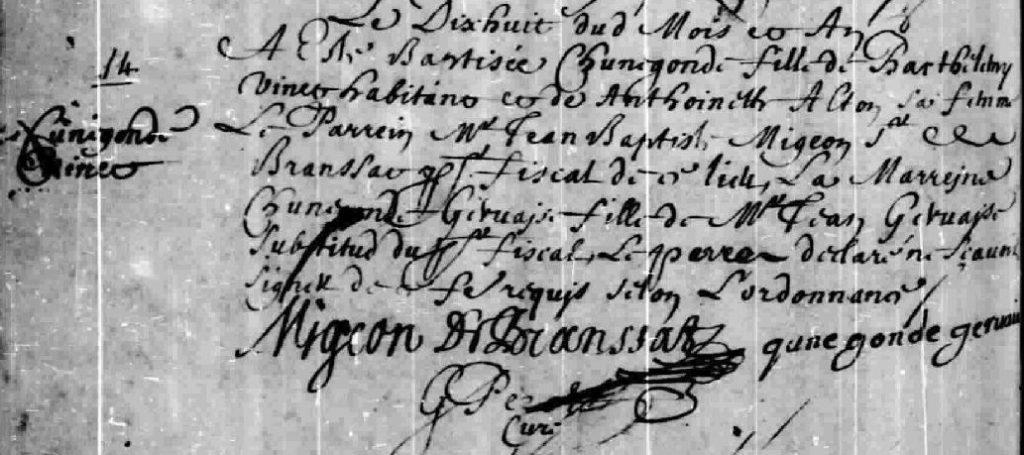 Le Dixhuit dud Mois et An
14
A Esté Baptisée Chunegonde fille de Barthélemy
Vinet habitant et de Anthoinette Alton sa femme
Cunigonde
Vinet
Le Parrein Mre Jean Baptiste Migeon Sr de
Branssat fiscal de ce lieu, La Marreine
Chunegonde Gervaise fille de Mre Jean Gervaise
Substitud du fiscal, Le perre declaré ne scavoir
Signer de ce requis selon L'ordonnance
Migeon De Branssat
qunegonde gervaise
G Pe
Curé